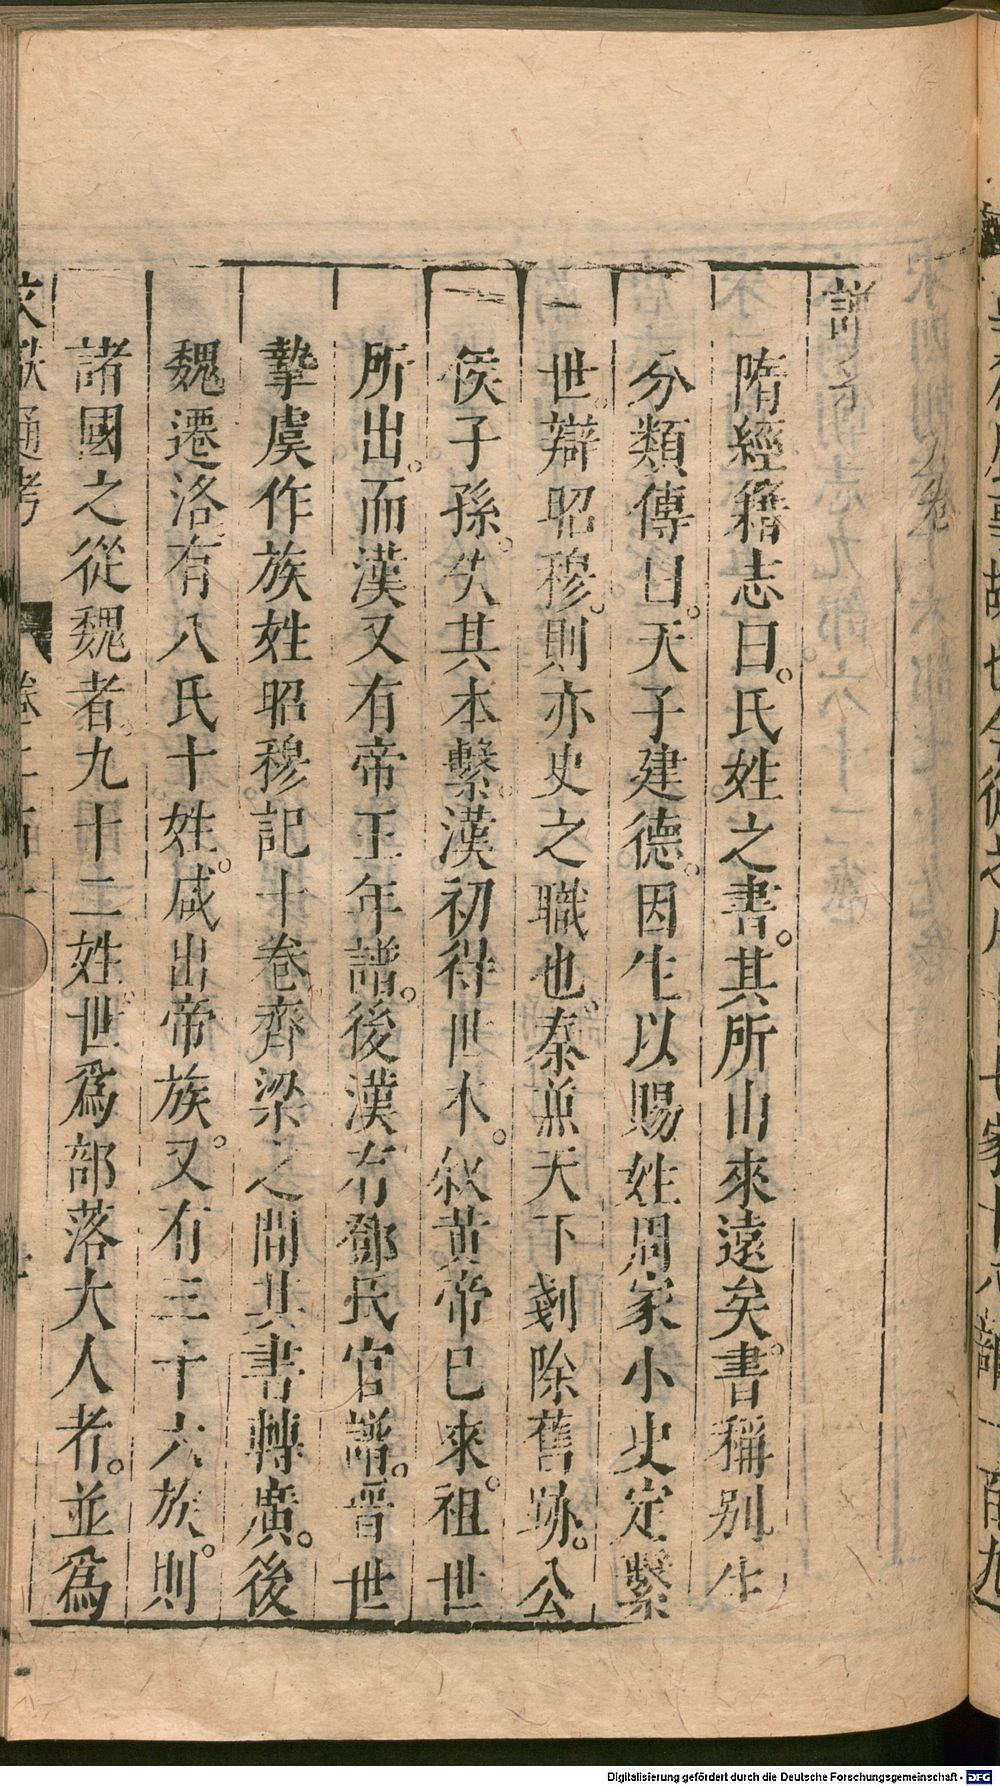 隋經籍志曰。氏姓之書。其所由來遠矣。書稱別生
分類傳曰。天子建德。因生以賜姓周家小史定繫
世。辯昭穆。則亦史之職也。秦兼天下剗除舊跡。公
侯子孫。失其本繫。漢初得世本。敘黃帝已來。祖世
所出。而漢又有帝王年譜。後漢有鄧氏官譜。晉世
摯虞作族姓昭穆記十卷齊梁之間其書轉廣。後
魏遷洛。有八氏十姓。咸出帝族。又有三十六族。則
諸國之從魏者。九十二姓。世爲部落大人者。並爲
文獻通考 卷二百
Digitalisierung gefördert durch die Deutsche Forschungsgemeinschaft - DFG